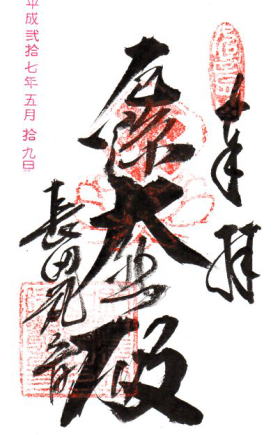 奉拝
厄除大悲殿
長田観音
平成弐拾七年五月拾九日